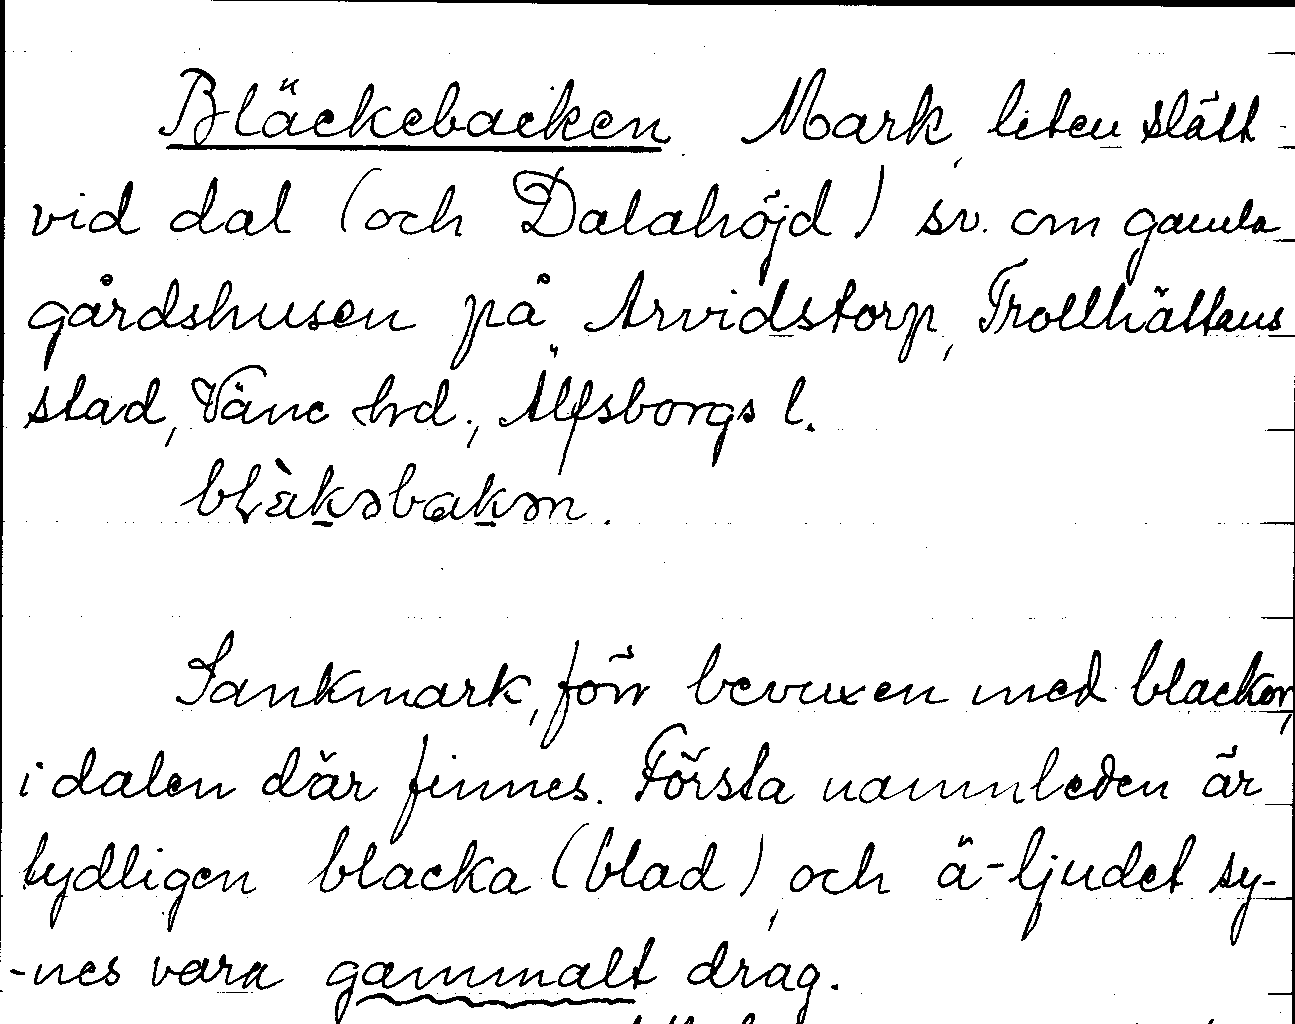 Bläckebacken Mark, liten slätt
vid dal (och Dalahöjd) sv. om gamla
gårdshusen på Arvidstorp, Trollhättans
stad, Väne hrd., Älfsborgs l.
blàkəbakən.
Sankmark, förr bevuxen med blackor,
i dalen där finnes. Första namnleden är
tydligen blacka (blad), och ä-ljudet sy-
-nes vara gammalt drag.